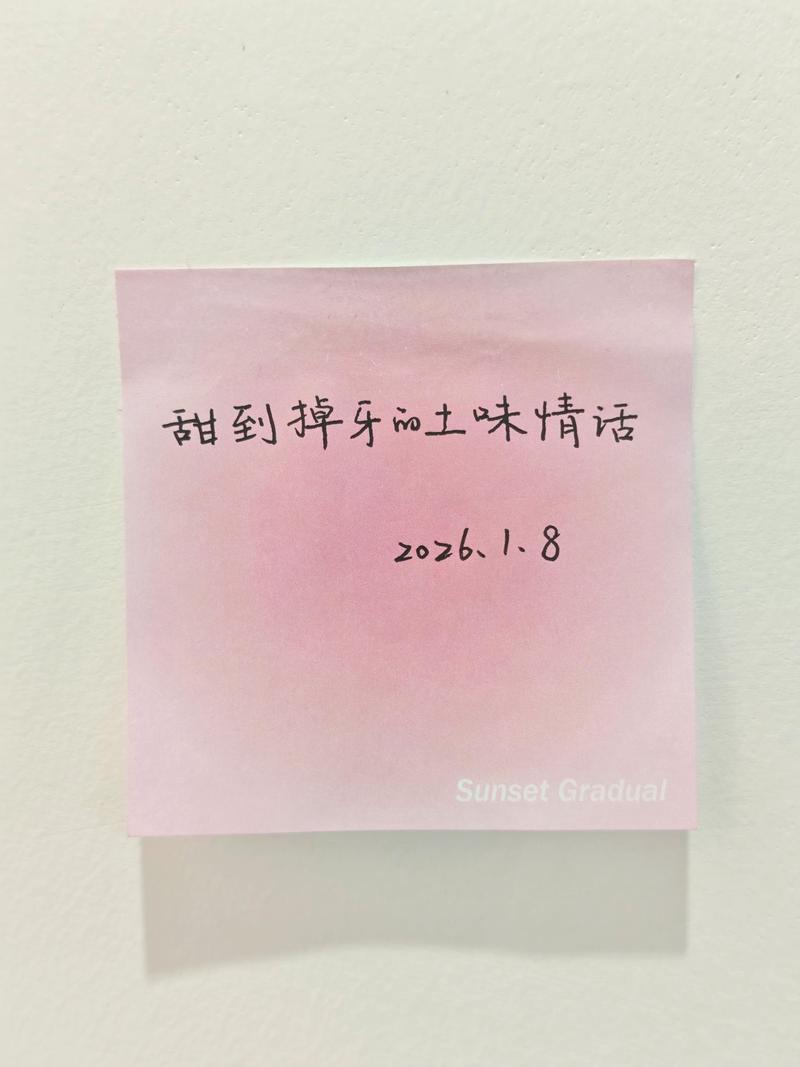 甜到掉牙的土味情话
2026.1.8
Sunset Gradual